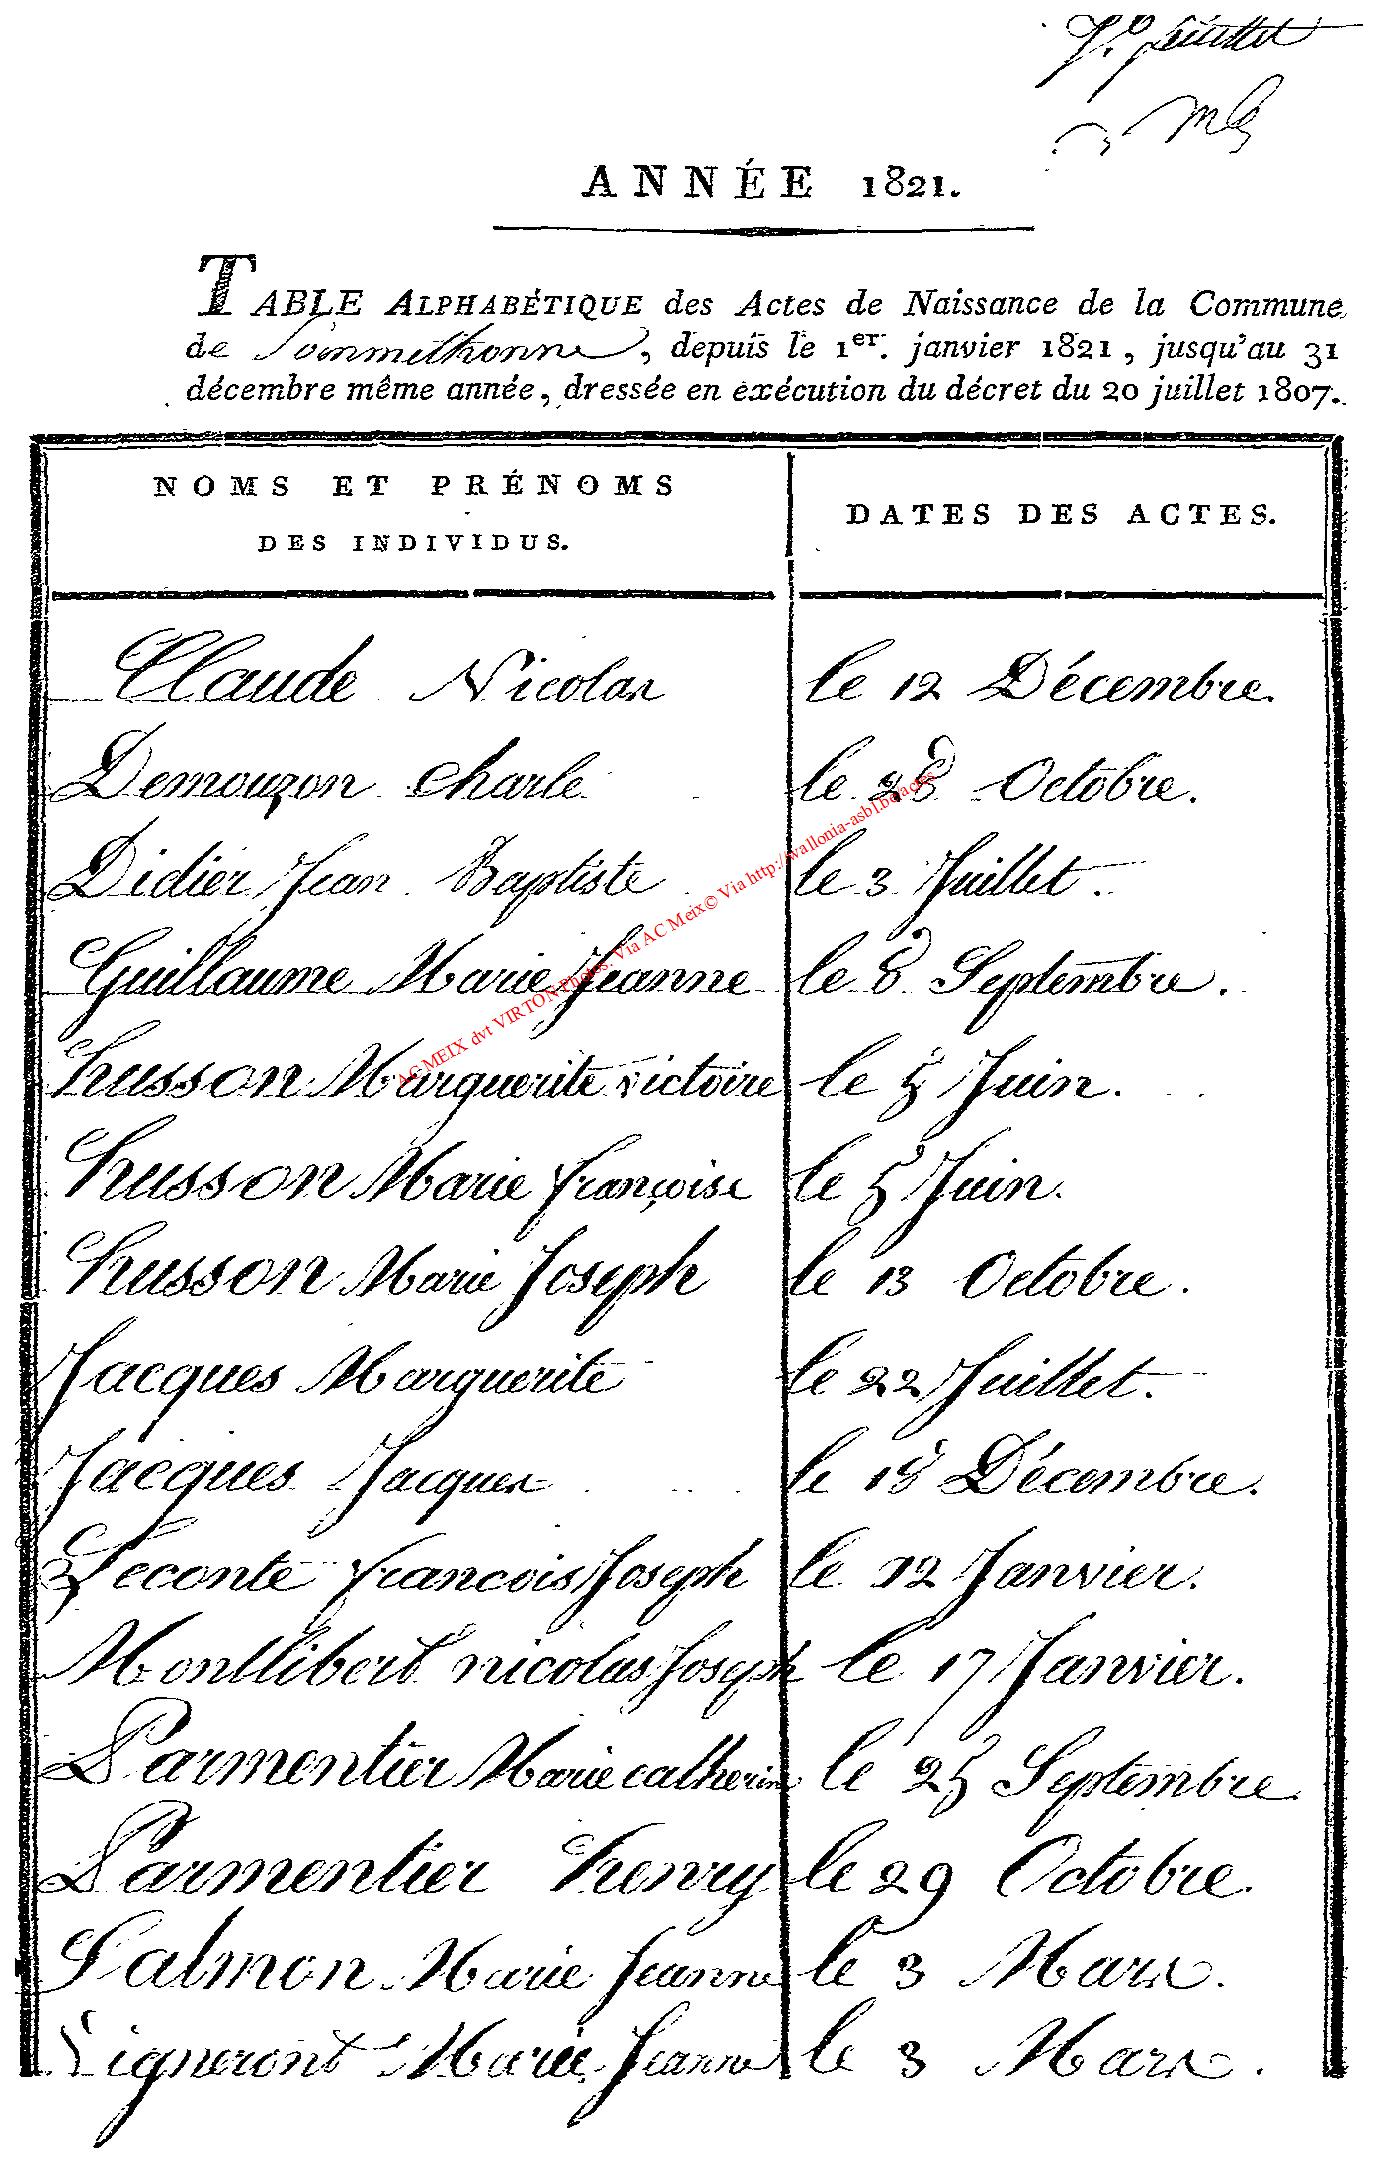 feuillet
ANNÉE 1821.
TABLE ALPHABÉTIQUE des Actes de Naissance de la Commune
de Sommethonne, depuis le 1er. janvier 1821, jusqu'au 31
décembre même année, dressée en exécution du décret du 20 juillet 1807.
NOMS ET PRÉNOMS
DES INDIVIDUS.
DATES DES ACTES.
Claude Nicolas le 12 Décembre.
Demouzon Charle le 28 Octobre.
Didier Jean Baptiste le 3 Juillet.
Guillaume Marie Jeanne le 8 Septembre.
husson Marguerite victoire le 5 Juin.
husson Marie françoise le 5 Juin.
husson Marie Joseph le 13 Octobre.
Jacques Marguerite le 22 Juillet.
Jacques Jacques le 18 Décembre.
Leconte francois Joseph le 12 Janvier.
Montlibert nicolas Joseph le 17 Janvier.
Parmentier Marie catherine le 25 Septembre.
Parmentier henry le 29 Octobre.
Salmon Marie Jeanne le 3 Mars.
Vigneront Marie Jeanne le 3 Mars.
AC MEIX dvt VIRTON Photos. Via AC Meix© Via http://wallonia-asbl.be/actes